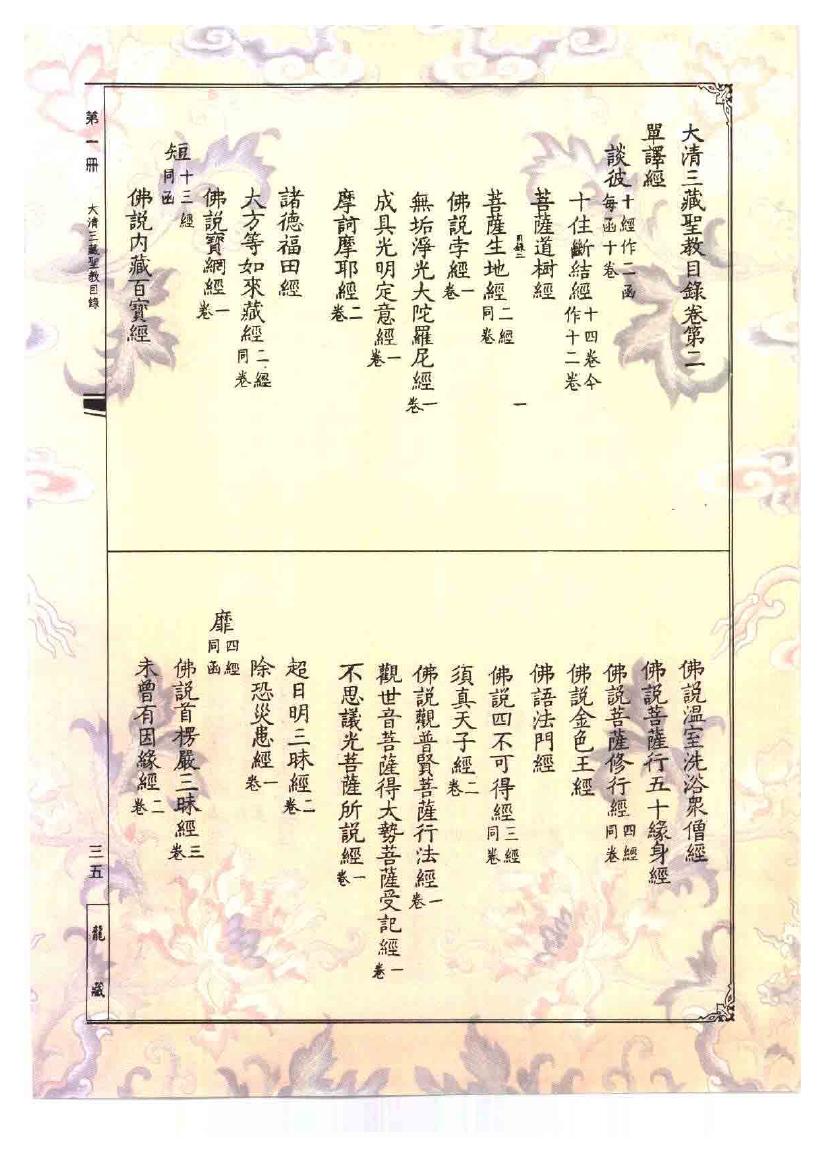 大清三藏聖教目錄卷第二
單譯經
談彼十經作二函每函十卷
十住斷結經十四卷今作十二卷
菩薩道樹經
目錄二 一
菩薩生地經二經同卷
佛説孛經一卷
無垢淨光大陀羅尼經一卷
成具光明定意經一卷
摩訶摩耶經二卷
諸德福田經
大方等如來藏經二經同卷
佛説寶網經一卷
短十三經同函
佛説内藏百寶經
佛説溫室洗浴衆僧經
佛説菩薩行五十緣身經
佛説菩薩修行經四經同卷
佛説金色王經
佛語法門經
佛説四不可得經三經同卷
須真天子經二卷
佛説觀普賢菩薩行法經一卷
觀世音菩薩得大勢菩薩受記經一卷
不思議光菩薩所説經一卷
超日明三昧經二卷
除恐災患經一卷
靡四經同函
佛説首楞嚴三昧經三卷
未曾有因緣經二卷
第一冊 大清三藏聖教目錄
三五
龍藏